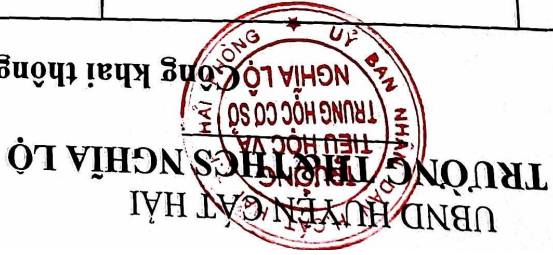 UBND HUYỆN CÁT HẢI
TRƯỜNG TH&THCS NGHĨA LỘ
Công khai thông
UỶ BAN NHÂN DÂN H. CÁT HẢI HẢI PHÒNG
TRƯỜNG
TIỂU HỌC VÀ
TRUNG HỌC CƠ SỞ
NGHĨA LỘ